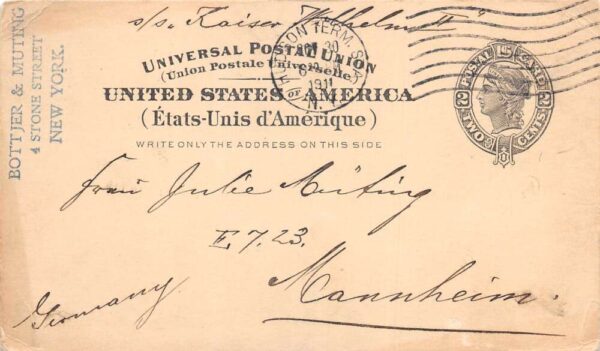 s/s. Kaiser Wilhelm II"
BOTTJER & MUTING
4 STONE STREET
NEW YORK.
UNIVERSAL POSTAL UNION
(Union Postale Universelle)
UNITED STATES OF AMERICA
(États-Unis d'Amérique)
WRITE ONLY THE ADDRESS ON THIS SIDE
TERM. STA.
30
1911
N.Y.
POSTAL CARD
TWO CENTS
Frau Julie Müting
E 7. 23.
Mannheim.
Germany